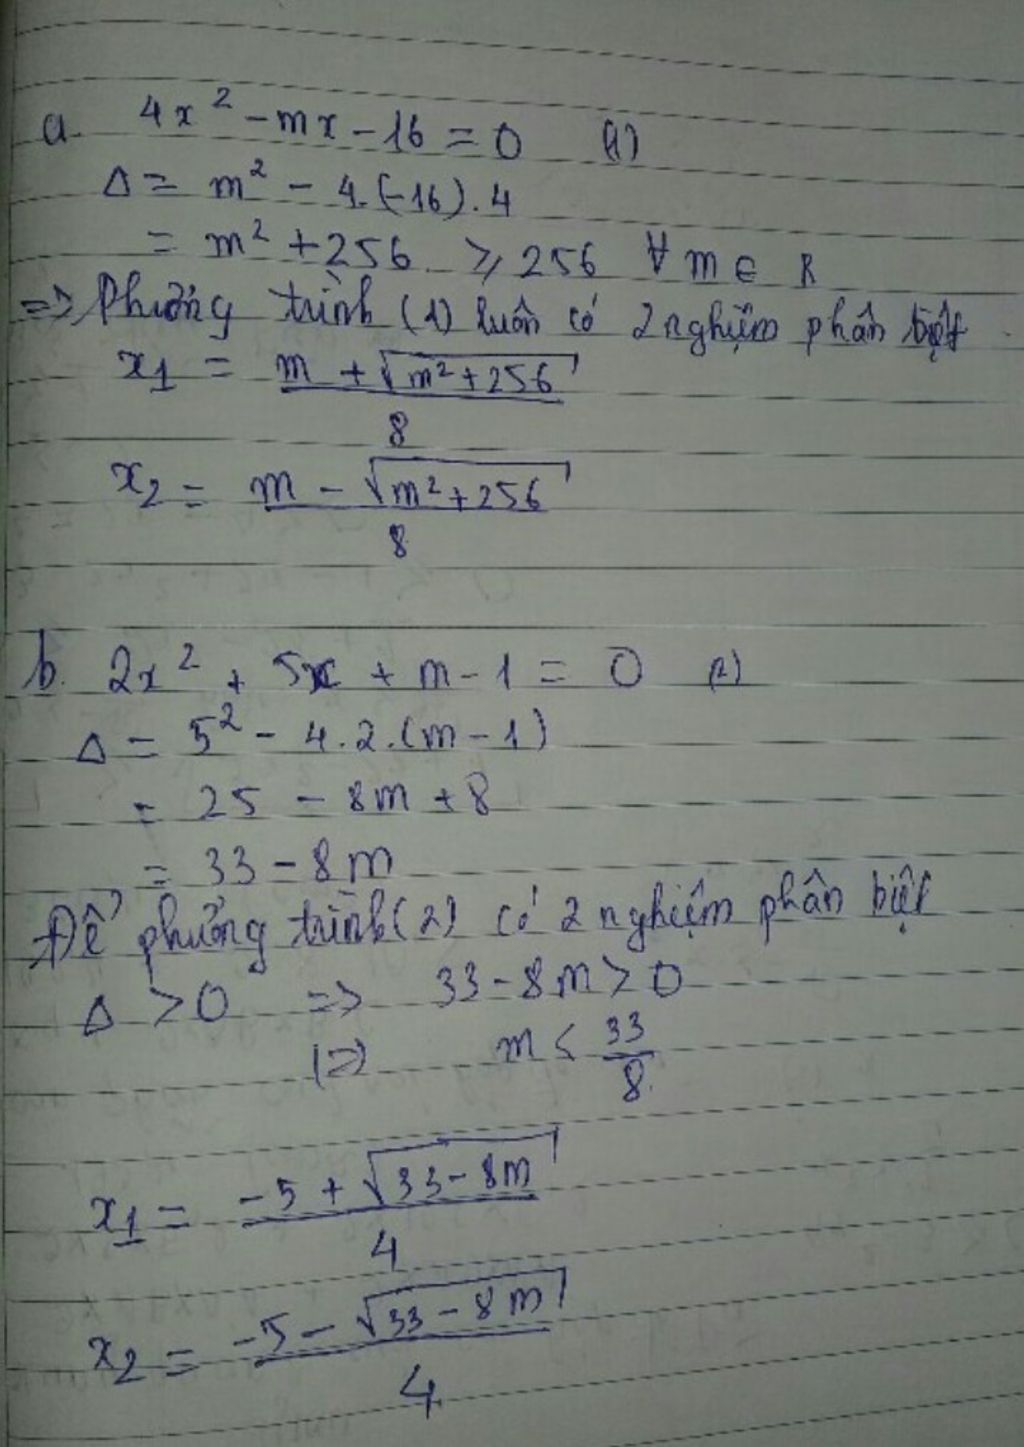 a. 4x² - mx - 16 = 0 (1)
Δ = m² - 4.(-16).4
= m² + 256 ⩾ 256 ∀ m ∈ R
=> Phương trình (1) luôn có 2 nghiệm phân biệt.
x₁ = (m + √(m² + 256))/8
x₂ = (m - √(m² + 256))/8
b. 2x² + 5x + m - 1 = 0 (2)
Δ = 5² - 4.2.(m - 1)
= 25 - 8m + 8
= 33 - 8m
Để phương trình (2) có 2 nghiệm phân biệt
Δ > 0 => 33 - 8m > 0
(=) m < 33/8.
x₁ = (-5 + √(33 - 8m))/4
x₂ = (-5 - √(33 - 8m))/4